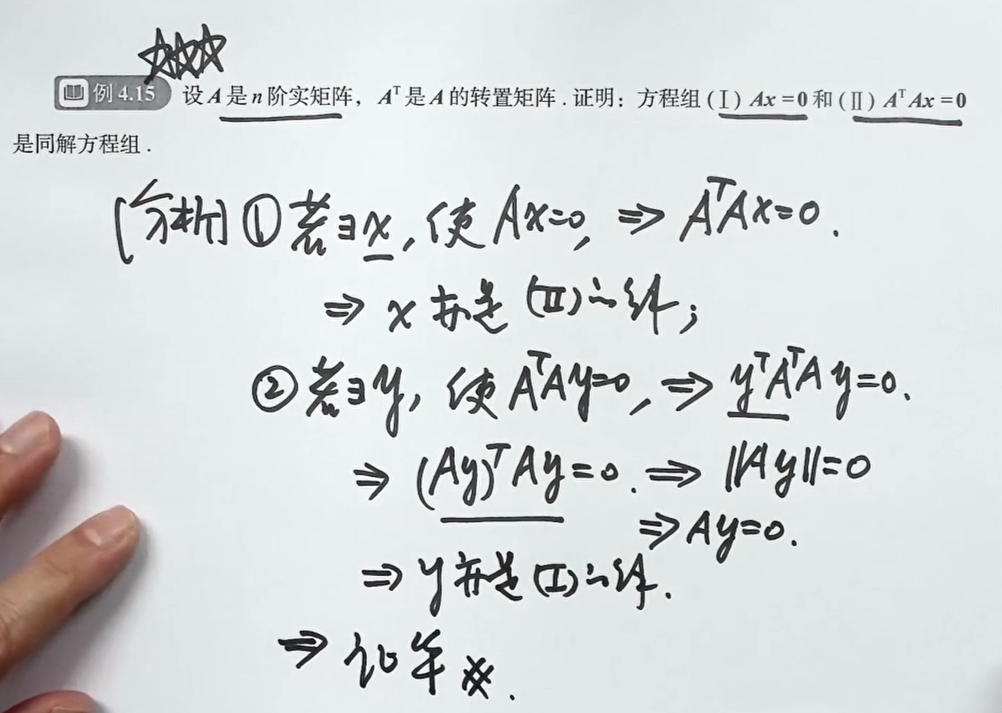 例 4.15 设A是n阶实矩阵，Aᵀ是A的转置矩阵．证明：方程组(Ⅰ) Ax=0和(Ⅱ) AᵀAx=0
是同解方程组．
[分析] ① 若∃x, 使 Ax=0, ⇒ AᵀAx=0.
⇒ x 亦是 (Ⅱ) 的解;
② 若∃y, 使 AᵀAy=0, ⇒ yᵀAᵀAy=0.
⇒ (Ay)ᵀAy=0. ⇒ ‖Ay‖=0
⇒ Ay=0.
⇒ y 亦是 (Ⅰ) 的解.
⇒ 证毕 ※.